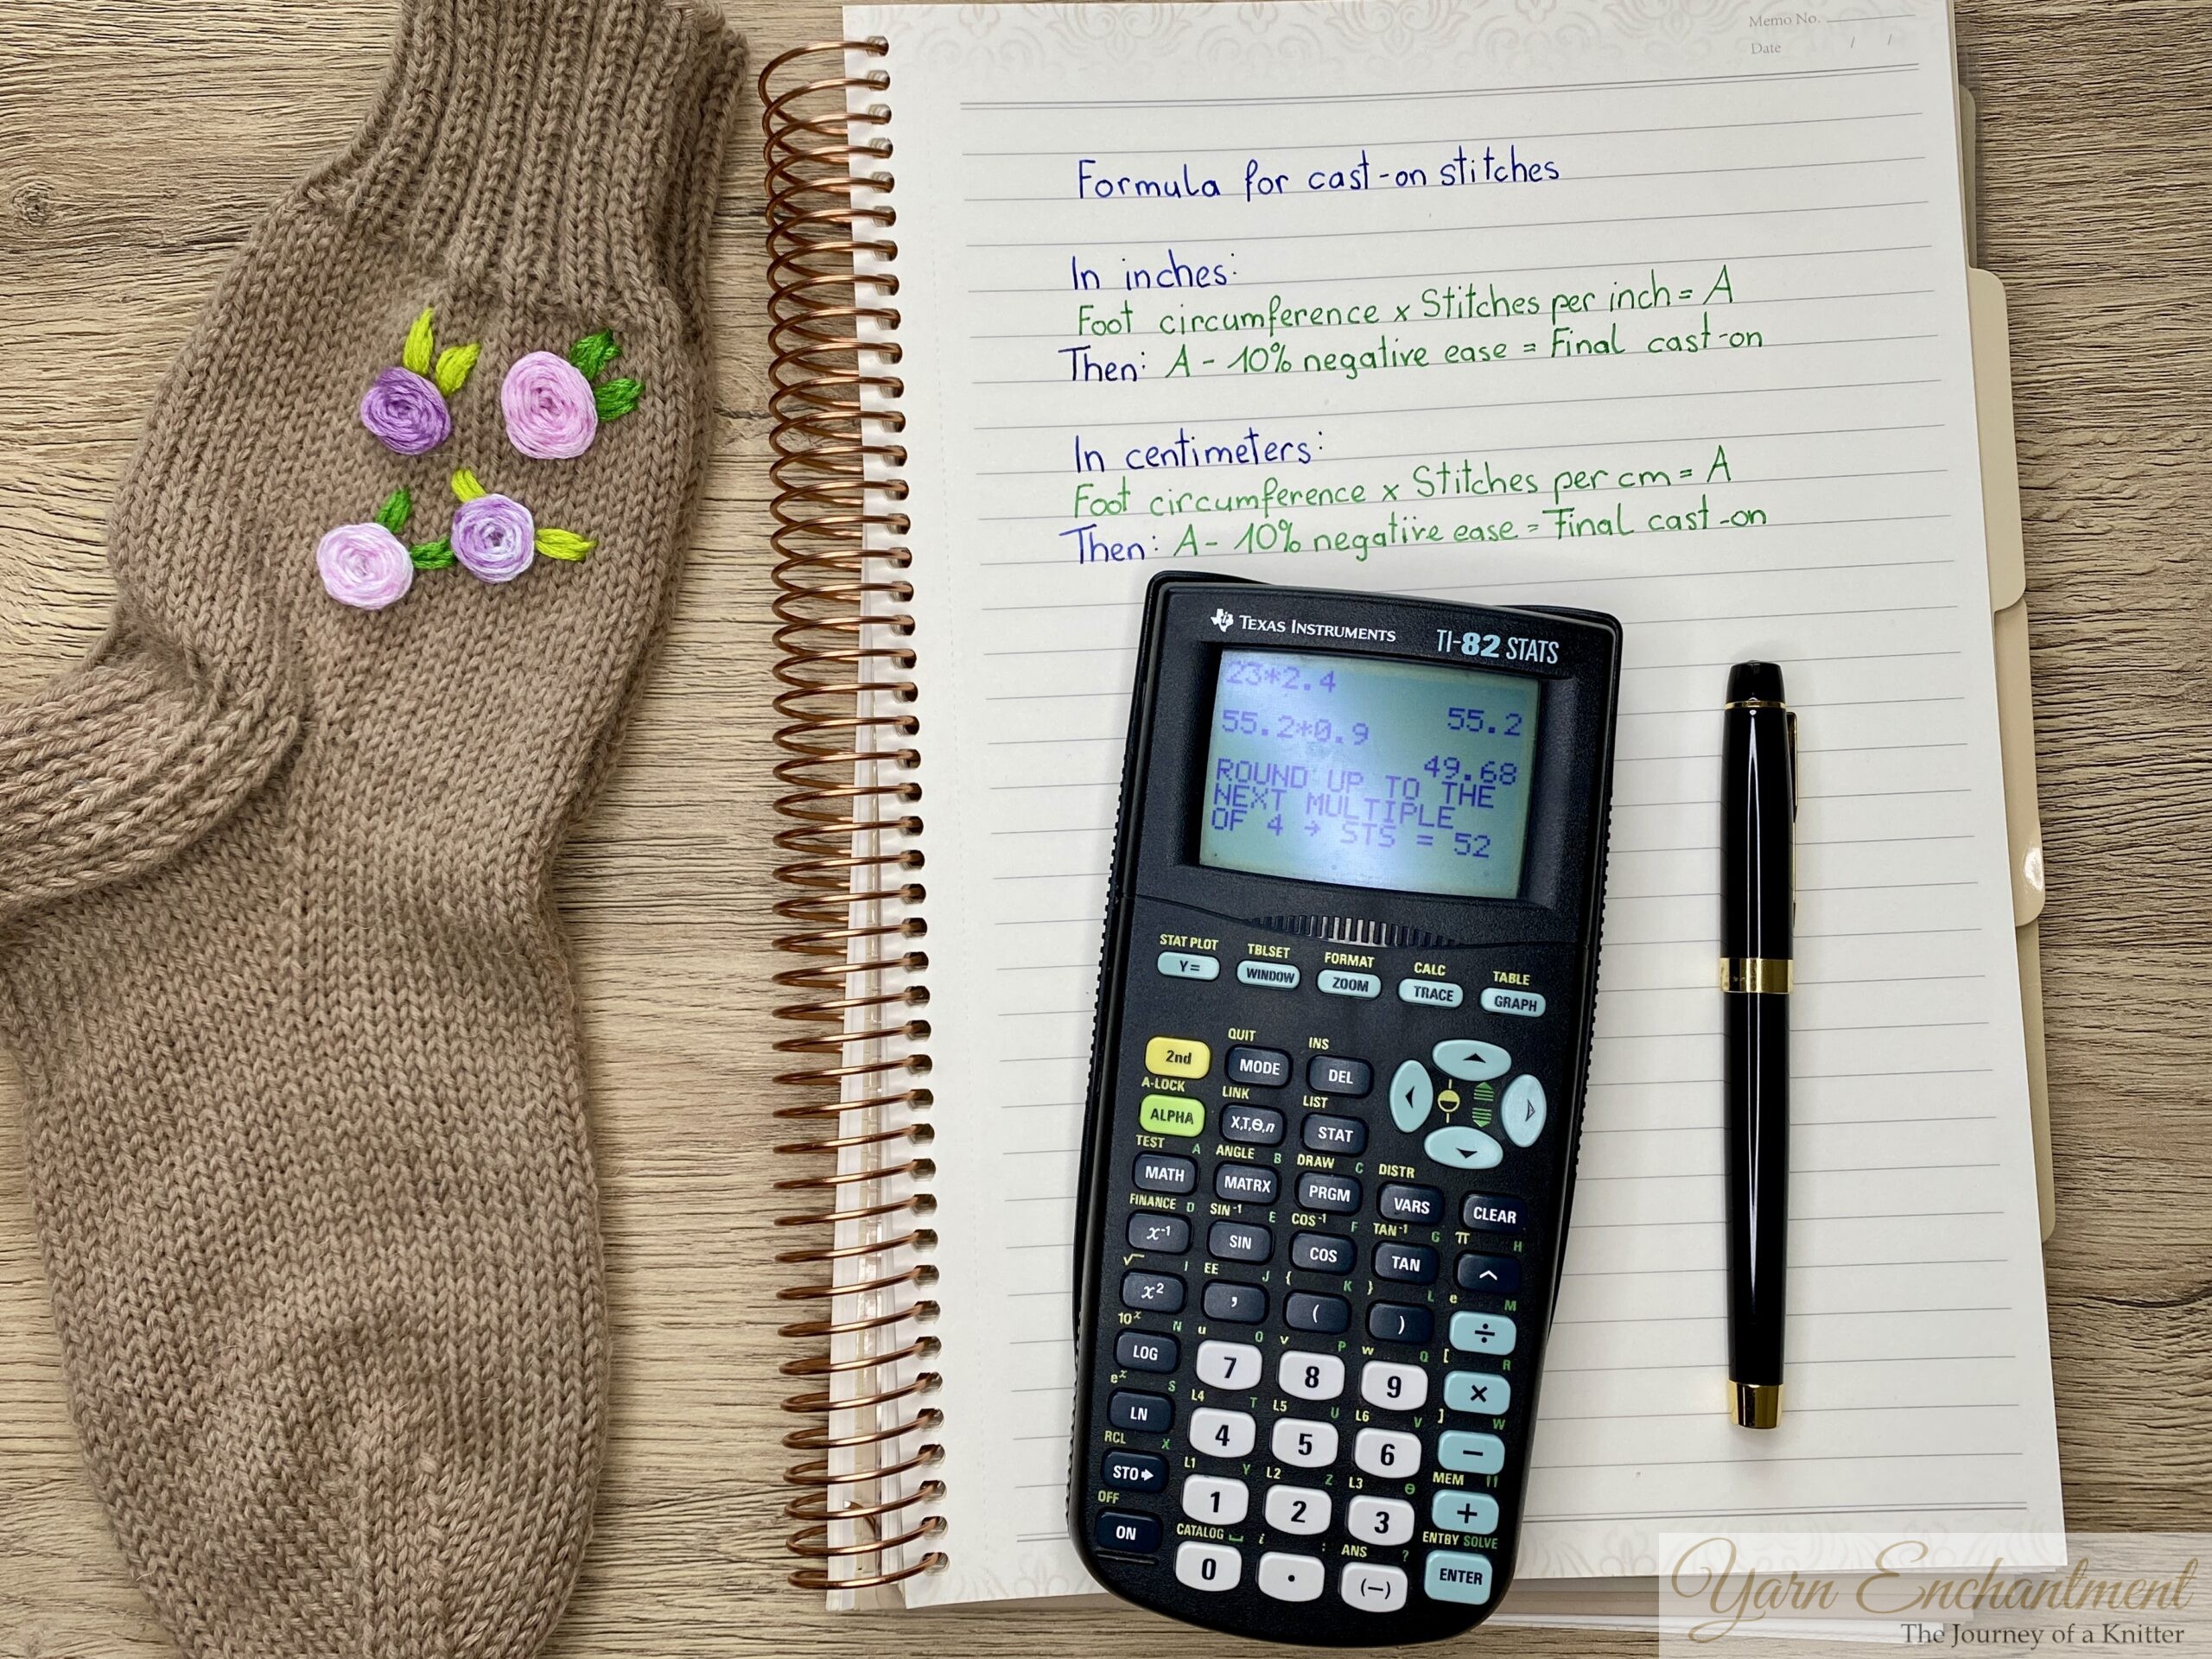 Memo No.
Date / /
Formula for cast-on stitches
In inches:
Foot circumference x Stitches per inch = A
Then: A - 10% negative ease = Final cast-on
In centimeters:
Foot circumference x Stitches per cm = A
Then: A - 10% negative ease = Final cast-on
TEXAS INSTRUMENTS TI-82 STATS
23*2.4
55.2
55.2*0.9
49.68
ROUND UP TO THE
NEXT MULTIPLE
OF 4 → STS = 52
STAT PLOT TBLSET FORMAT CALC TABLE
Y= WINDOW ZOOM TRACE GRAPH
QUIT INS
2nd MODE DEL
A-LOCK LINK LIST
ALPHA X,T,Θ,n STAT
TEST A ANGLE B DRAW C DISTR
MATH MATRX PRGM VARS CLEAR
FINANCE D SIN⁻¹ E COS⁻¹ F TAN⁻¹ G π H
x⁻¹ SIN COS TAN ^
√ I EE J { K } L e M
x² , ( ) ÷
10ˣ N u O v P w Q [ R
LOG 7 8 9 ×
eˣ S L4 T L5 U L6 V ] W
LN 4 5 6 −
RCL X L1 Y L2 Z L3 θ MEM "
STO► 1 2 3 +
OFF CATALOG ⎵ i : ANS ? ENTRY SOLVE
ON 0 . (−) ENTER
Yarn Enchantment
The Journey of a Knitter